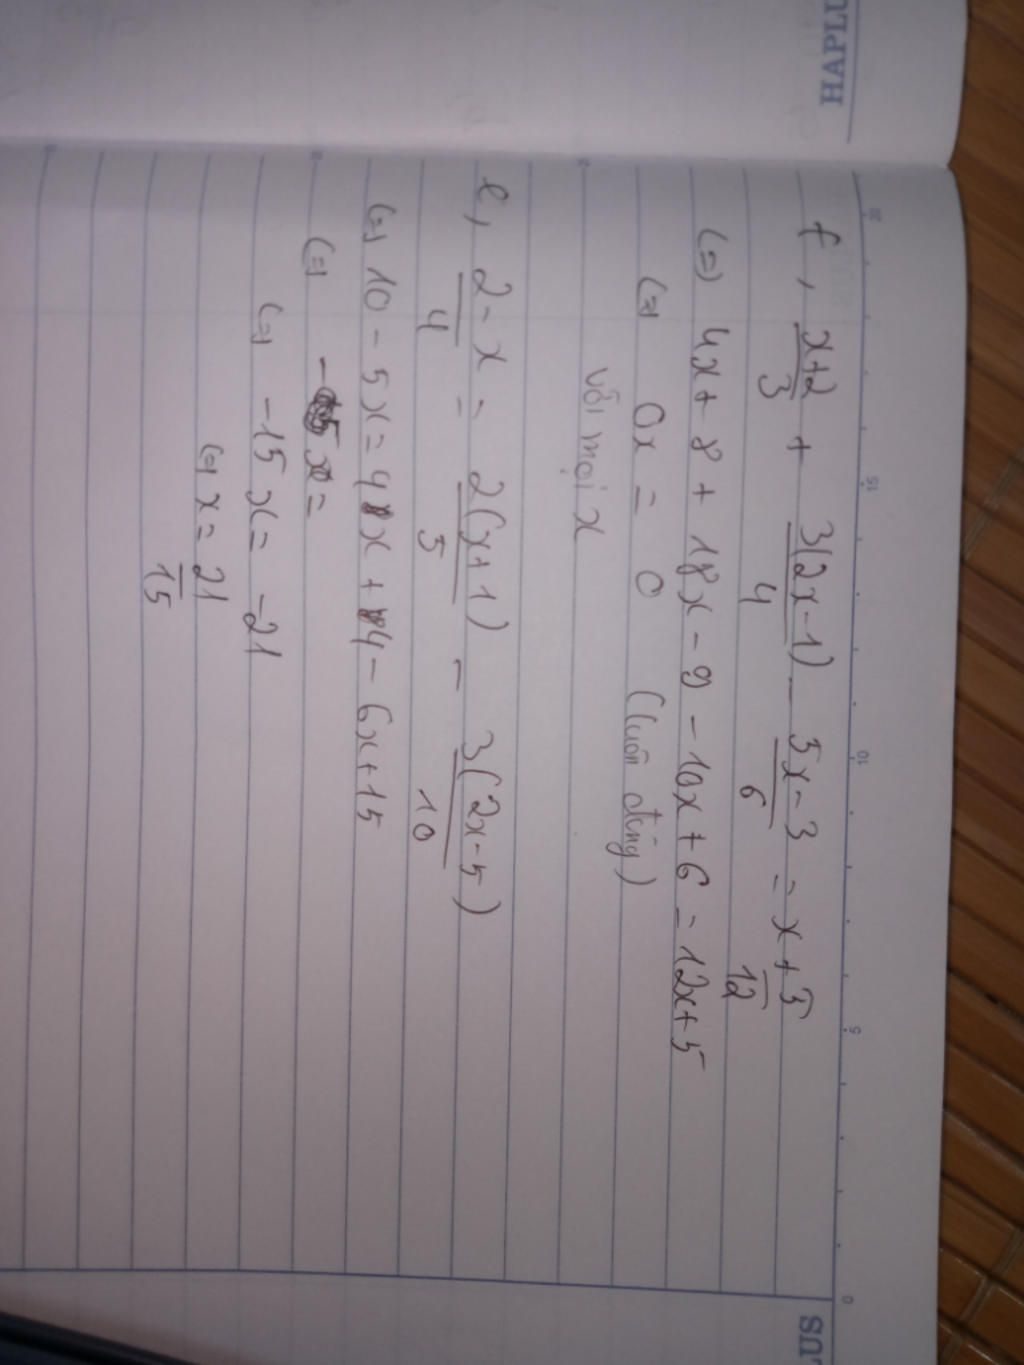 HAPLU
f, (x+2)/3 + 3(2x-1)/4 - (5x-3)/6 = x + 5/12
(=) 4x + 8 + 18x - 9 - 10x + 6 = 12x + 5
(=) 0x = 0 (luôn đúng)
với mọi x
e, (2-x)/4 = 2(x+1)/5 - 3(2x-5)/10
(=) 10 - 5x = 48x + 84 - 6x + 15
(=) - 5x =
(=) -15x = -21
(=) x = 21/15
15
10
5
0